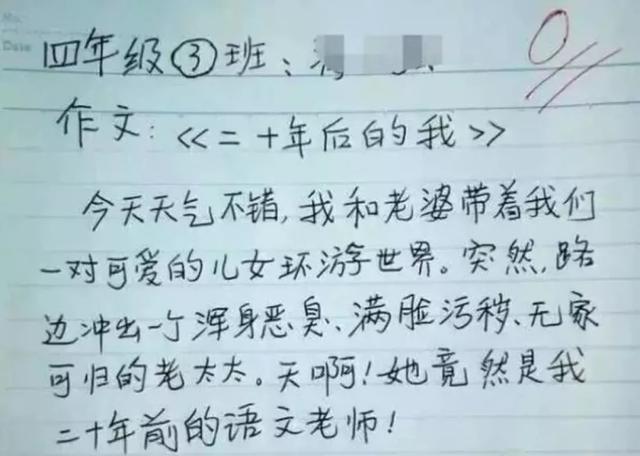 No.
Date
四年级③班:
0
作文:《二十年后的我》
今天天气不错,我和老婆带着我们
一对可爱的儿女环游世界。突然,路
边冲出一个浑身恶臭、满脸污秽、无家
可归的老太太。天啊!她竟然是我
二十年前的语文老师!